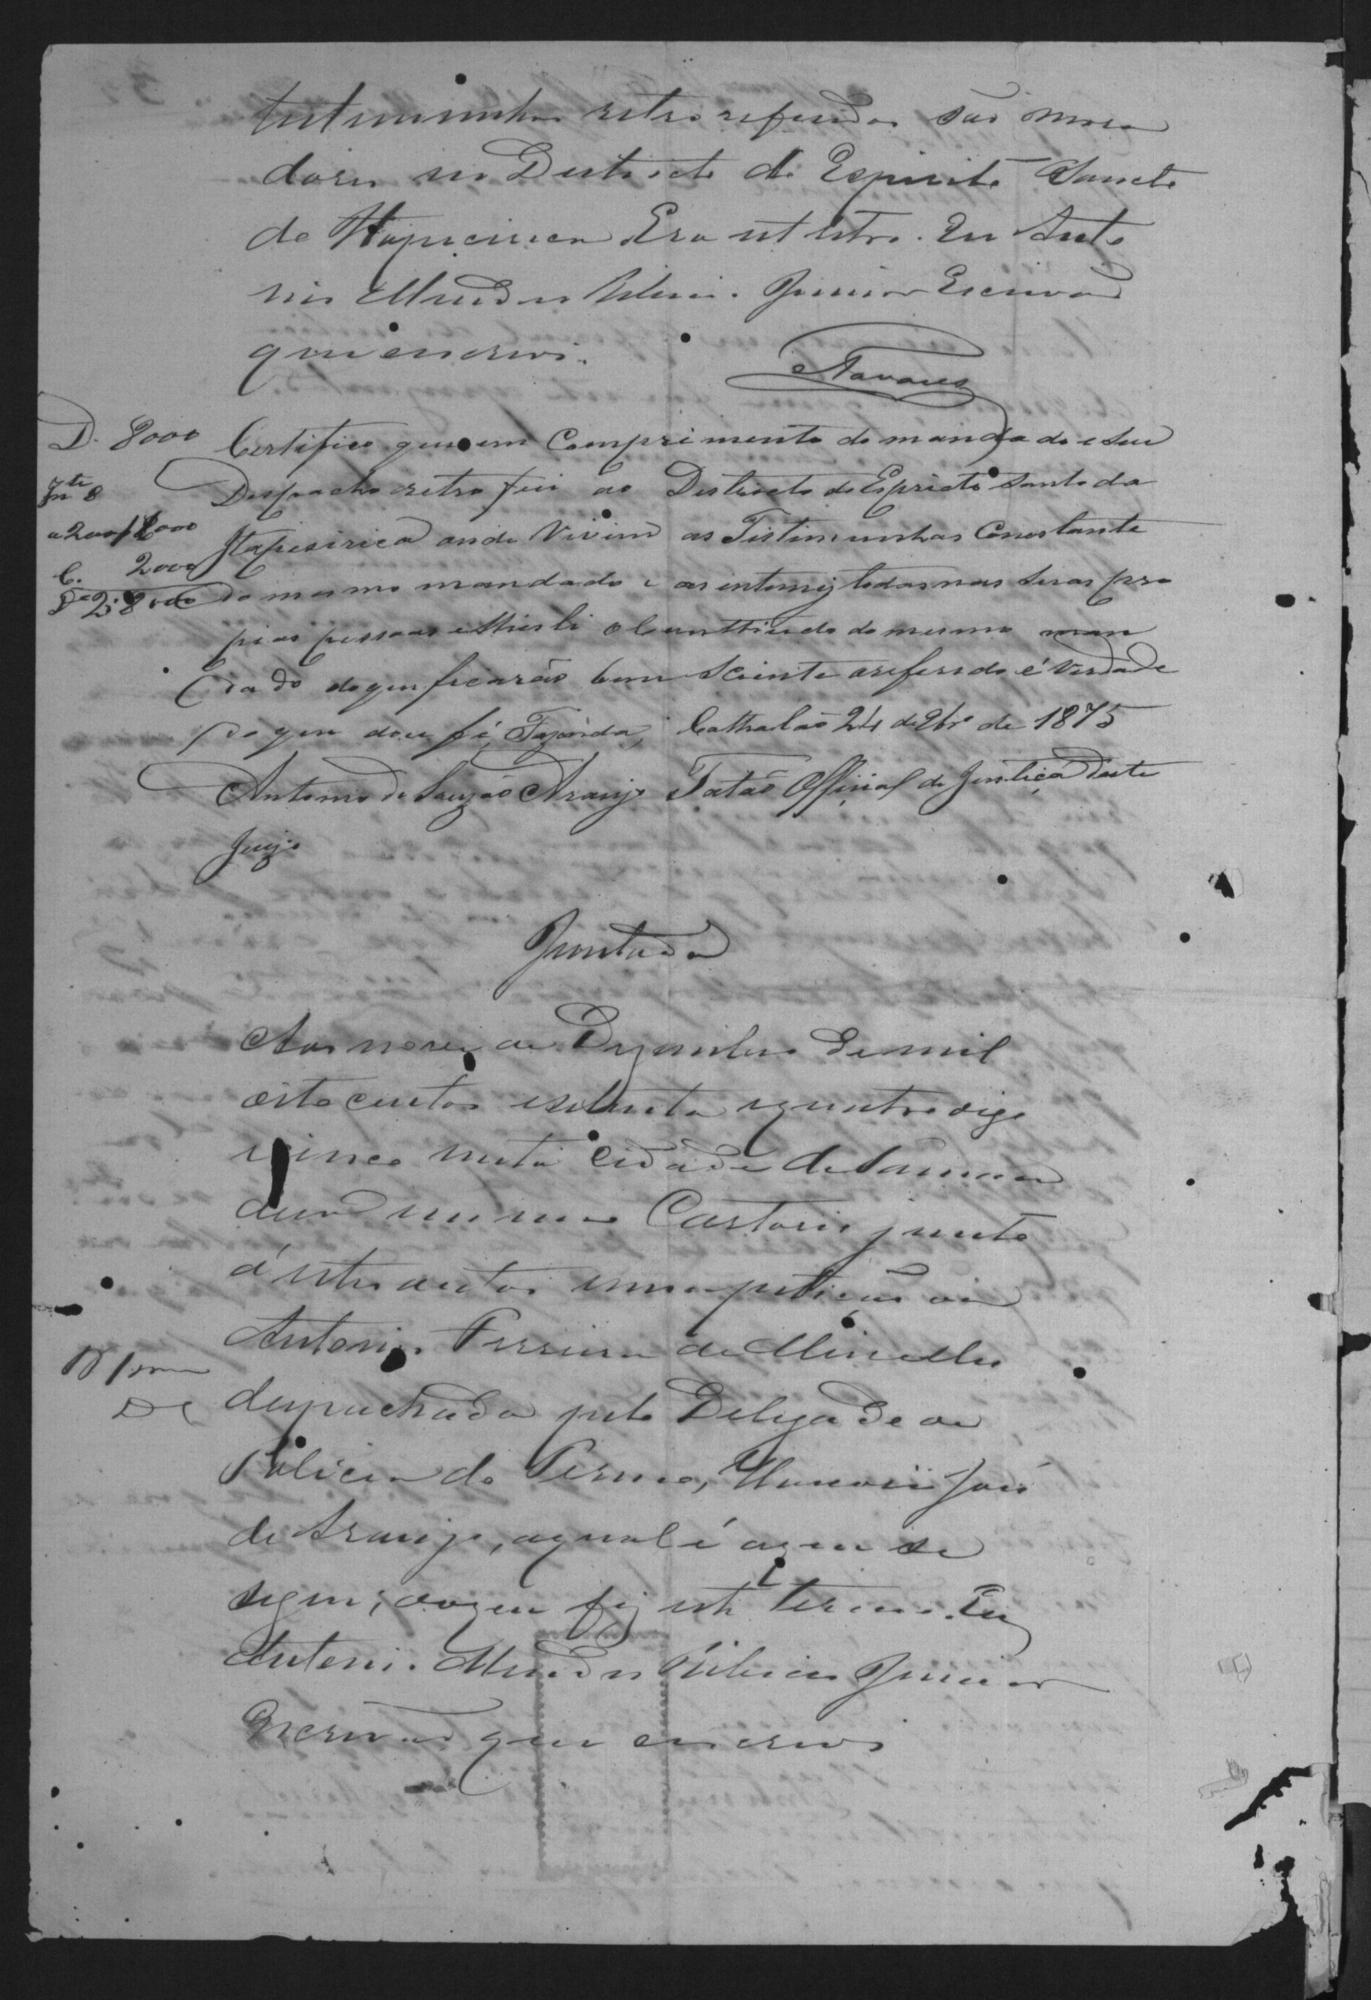 testemunhas retro referidas são mora
dores no Districto do Espirito Sancto
de Itapicirica Era ut retro. Eu Anto
nio Mendes Ribeiro Junior Escrivão
que escrevi.
Tavares
D. 8000
a 2000
C. 2000
Certifico que em Comprimento do mandado e seu
Despacho retro fui ao Districto do Espricto Santo da
Itapesirica onde Vivim as Tistimunhas Constante
do mesmo mandado e as intimij todas nas suas pro
pias pessoas e lhes li o Conttiudo do mesmo man
dado do que ficarão bem sciente o referido é Verdade
do que dou fé, Fazenda, Cathalão 24 de 9bro de 1875
Antonio de Souza Araujo Tatão Offiçial de Justiça deste
Juizo
Juntada
Aos nove de Dezembro de mil
oito centos e setenta e quatro digo
e cinco nesta Cidade de
em meu Cartorio junto
á estes autos uma petição de
Antonio Ferreira de Mirelles
despachada pelo Delegado de
Policia do Termo, Honorio José
de Araujo, a qual é a que se
segue; do que fiz este termo. Eu
Antonio Mendes Ribeiro Junior
Escrivão que escrevi